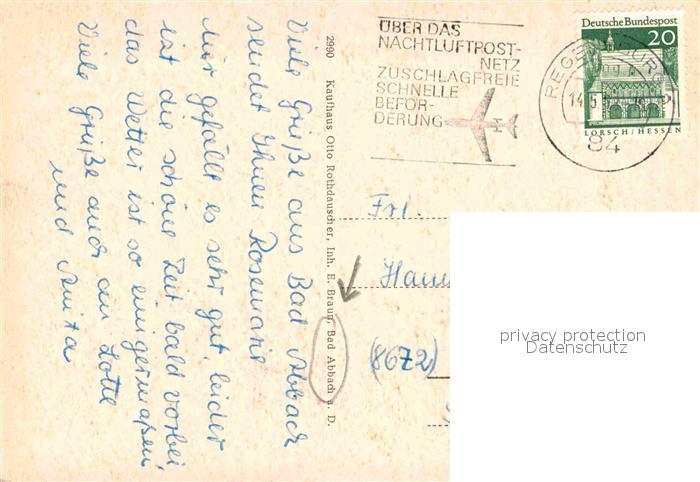 Viele Grüße aus Bad Abbach
sendet Ihnen Rosemarie
Mir gefällt es sehr gut, leider
ist die schöne Zeit bald vorbei,
das Wetter ist so einigermaßen,
Viele Grüße auch an Lotte
und Anita
2990 Kaufhaus Otto Rothdauscher, Inh. E. Braun, Bad Abbach a. D.
ÜBER DAS
NACHTLUFTPOST-
NETZ
ZUSCHLAGFREIE
SCHNELLE
BEFÖR-
DERUNG
REGENSBURG
14.5
84
Deutsche Bundespost
20
LORSCH/HESSEN
Frl.
Hann
(8672)
privacy protection
Datenschutz